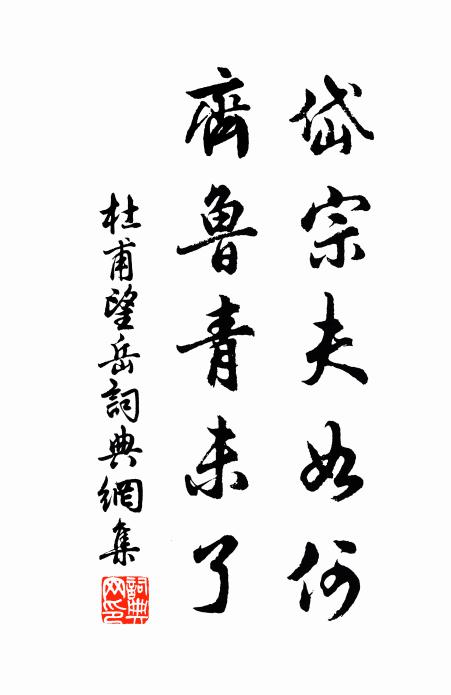 岱宗夫如何
齊魯青未了
杜甫望岳詞典網集
詞典網印